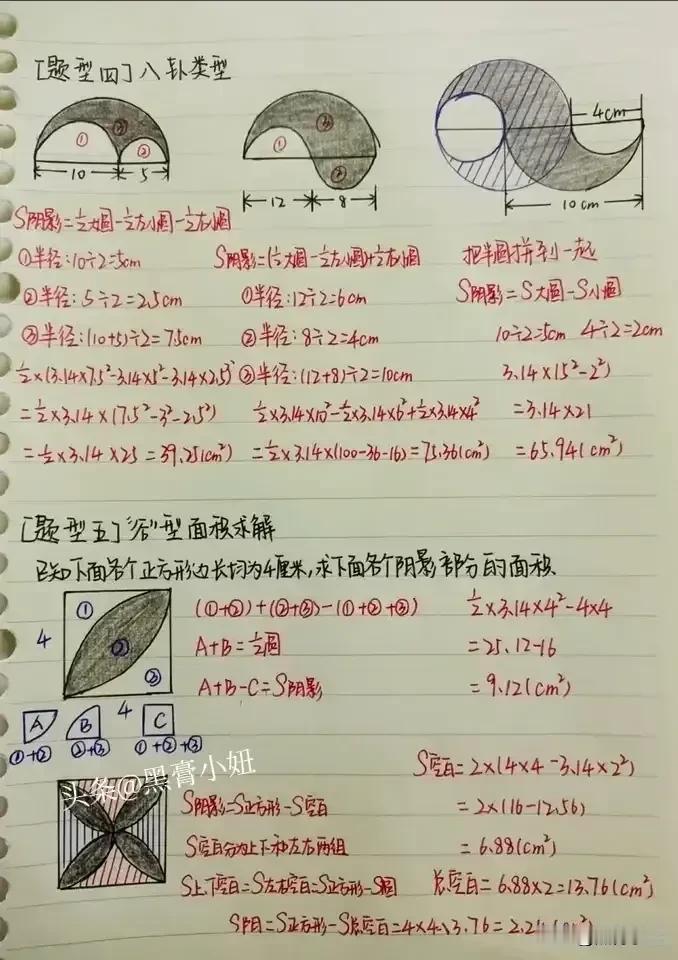 [题型四]八卦类型
① ② ③
10 5
① ③ ②
12 8
4cm
10cm
S阴影=½大圆-½左小圆-½右小圆
①半径:10÷2=5cm
②半径:5÷2=2.5cm
③半径:(10+5)÷2=7.5cm
½×(3.14×7.5²-3.14×5²-3.14×2.5²)
=½×3.14×(7.5²-3²-2.5²)
=½×3.14×25=39.25(cm²)
S阴影=(½大圆-½左小圆)+½右小圆
①半径:12÷2=6cm
②半径:8÷2=4cm
③半径:(12+8)÷2=10cm
½×3.14×10²-½×3.14×6²+½×3.14×4²
=½×3.14×(100-36-16)=75.36(cm²)
把半圆拼到一起
S阴影=S大圆-S小圆
10÷2=5cm 4÷2=2cm
3.14×(5²-2²)
=3.14×21
=65.94(cm²)
[题型五]"谷"型面积求解
已知下面各个正方形边长均为4厘米,求下面各个阴影部分的面积.
① ② ③
4
4
A B C
①+② ②+③ ①+②+③
(①+②)+(②+③)-(①+②+③)
A+B=½圆
A+B-C=S阴影
½×3.14×4²-4×4
=25.12-16
=9.12(cm²)
头条@黑膏小妞
S阴影=S正方形-S空白
S空白分为上下和左右两组
S上下空白=S左右空白=S正方形-S圆
S空白=2×(4×4-3.14×2²)
=2×(16-12.56)
=6.88(cm²)
总空白=6.88×2=13.76(cm²)
S阴=S正方形-S总空白=4×4-13.76=2.24(cm²)